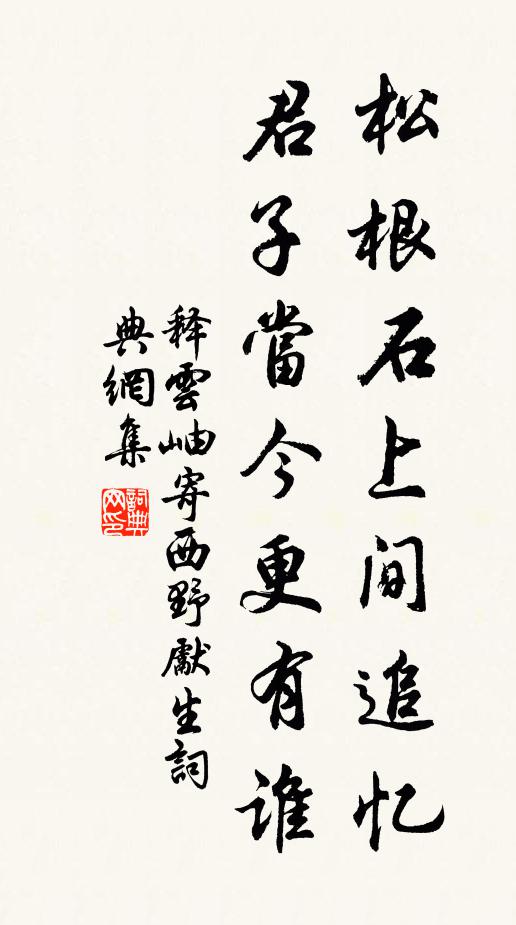 松根石上间追忆
君子當今更有谁
释雲岫寄西野獻生詞
典網集
詞典网印